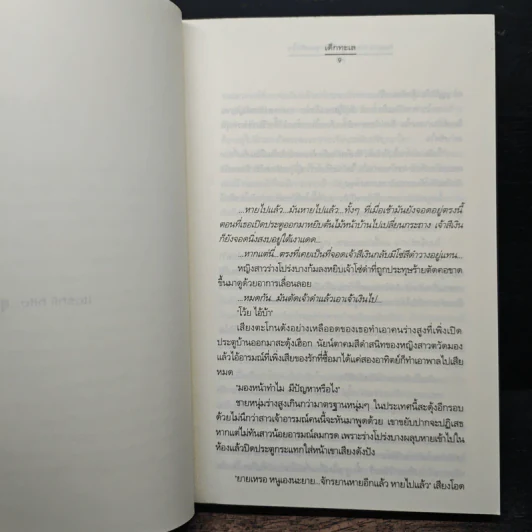 เด็กทะเล
...หายไปแล้ว...มันหายไปแล้ว...ทั้งๆ ที่เมื่อเช้ามันยังจอดอยู่ตรงนี้
ตอนที่เธอเปิดประตูออกมาหยิบต้นไม้หน้าบ้านไปเปลี่ยนกระถาง เจ้าสีเงิน
ก็ยังจอดนิ่งสงบอยู่ใต้เงาแดด...
...หากแต่นี่...ตรงที่เคยเป็นที่จอดเจ้าสีเงินกลับมีโซ่สีดำวางอยู่แทน...
หญิงสาวร่างโปร่งบางก้มลงหยิบเจ้าโซ่ดำที่ถูกประทุษร้ายตัดคอขาด
ขึ้นมาดูด้วยอาการเลื่อนลอย
...หมดกัน...มันตัดเจ้าดำแล้วเอาเจ้าเงินไป...
"โว้ย ไอ้บ้า"
เสียงตะโกนดังอย่างเหลืออดของเธอทำเอาคนร่างสูงที่เพิ่งเปิด
ประตูบ้านออกมาสะดุ้งเฮือก นัยน์ตาคมสีดำสนิทของหญิงสาวตวัดมอง
แล้วไอ้อารมณ์ที่เพิ่งเสียของรักที่ซื้อมาได้แค่สองอาทิตย์ก็ทำเอาพาลไปเสีย
หมด
"มองหน้าทำไม มีปัญหาหรือไง"
ชายหนุ่มร่างสูงเกินกว่ามาตรฐานหนุ่มๆ ในประเทศนี้สะดุ้งอีกรอบ
ด้วยไม่นึกว่าสาวเจ้าอารมณ์คนนี้จะหันมาพูดด้วย เขาขยับปากจะปฏิเสธ
หากแต่ไม่ทันสาวน้อยอารมณ์ลมกรด เพราะร่างโปร่งบางผลุบหายเข้าไปใน
ห้องแล้วปิดประตูกระแทกใส่หน้าเขาเสียงดังปัง
"ยายเหรอ หนูเองนะยาย...จักรยานหายอีกแล้ว หายไปแล้ว" เสียงโอด